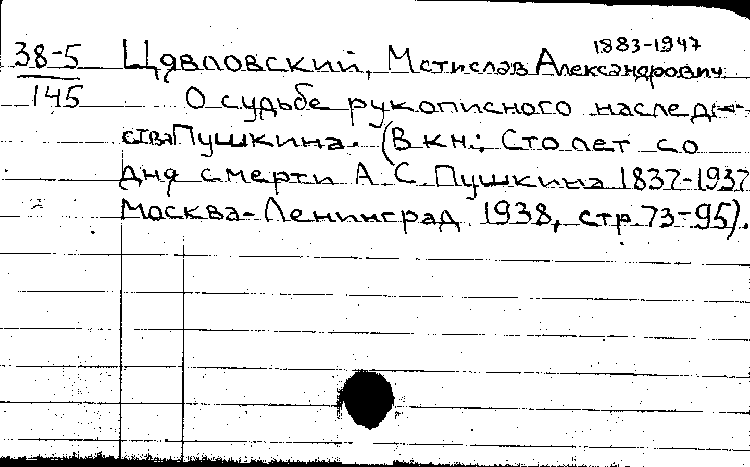 1883-1947
38-5 Цявловский, Мстислав Александрович
145 О судьбе рукописного наслед-
ства Пушкина. (В кн.: Сто лет со
дня смерти А. С. Пушкина 1837-1937
Москва-Ленинград 1938, стр. 73-95).